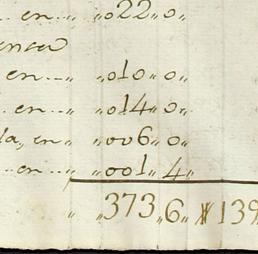 en „ „022„0„
en „ „010„0„
en „ „014„0„
da, en „ „006„0„
en „ „001„4„
„ „373„6„ 139